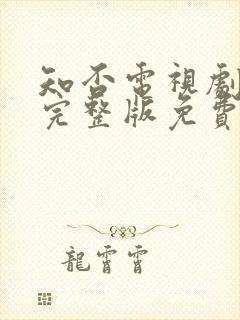 知否電視劇
完整版免費
龍霄霄